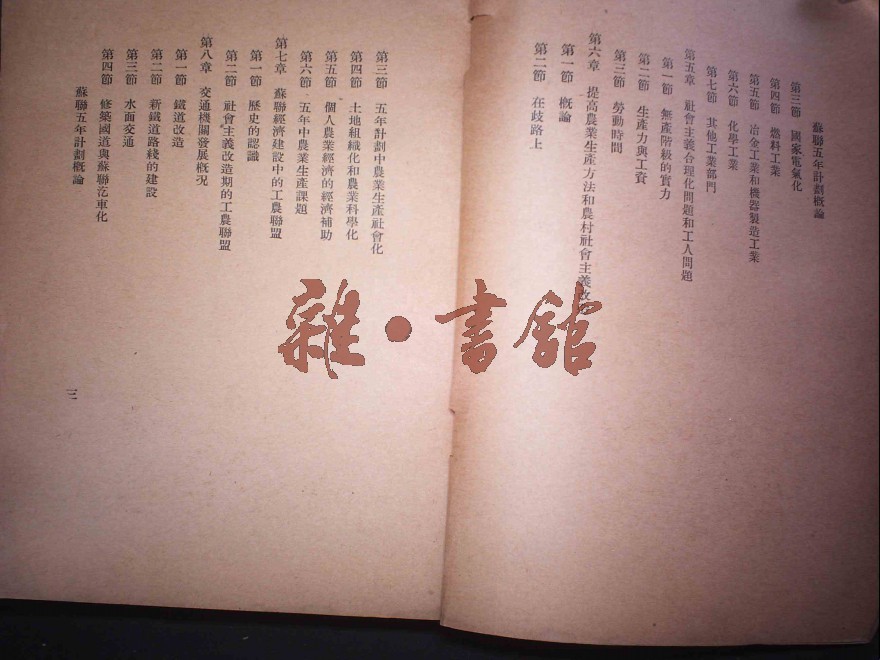 蘇聯五年計劃概論
第三節 國家電氣化
第四節 燃料工業
第五節 冶金工業和機器製造工業
第六節 化學工業
第七節 其他工業部門
第五章 社會主義合理化問題和工人問題
第一節 無產階級的實力
第二節 生產力與工資
第三節 勞動時間
第六章 提高農業生產方法和農村社會主義改
第一節 概論
第二節 在歧路上
第三節 五年計劃中農業生產社會化
第四節 土地組織化和農業科學化
第五節 個人農業經濟的經濟補助
第六節 五年中農業生產課題
第七章 蘇聯經濟建設中的工農聯盟
第一節 歷史的認識
第二節 社會主義改造期的工農聯盟
第八章 交通機關發展概況
第一節 鐵道改造
第二節 新鐵道路綫的建設
第三節 水面交通
第四節 修築國道與蘇聯汽車化
蘇聯五年計劃概論
三
雜·書館